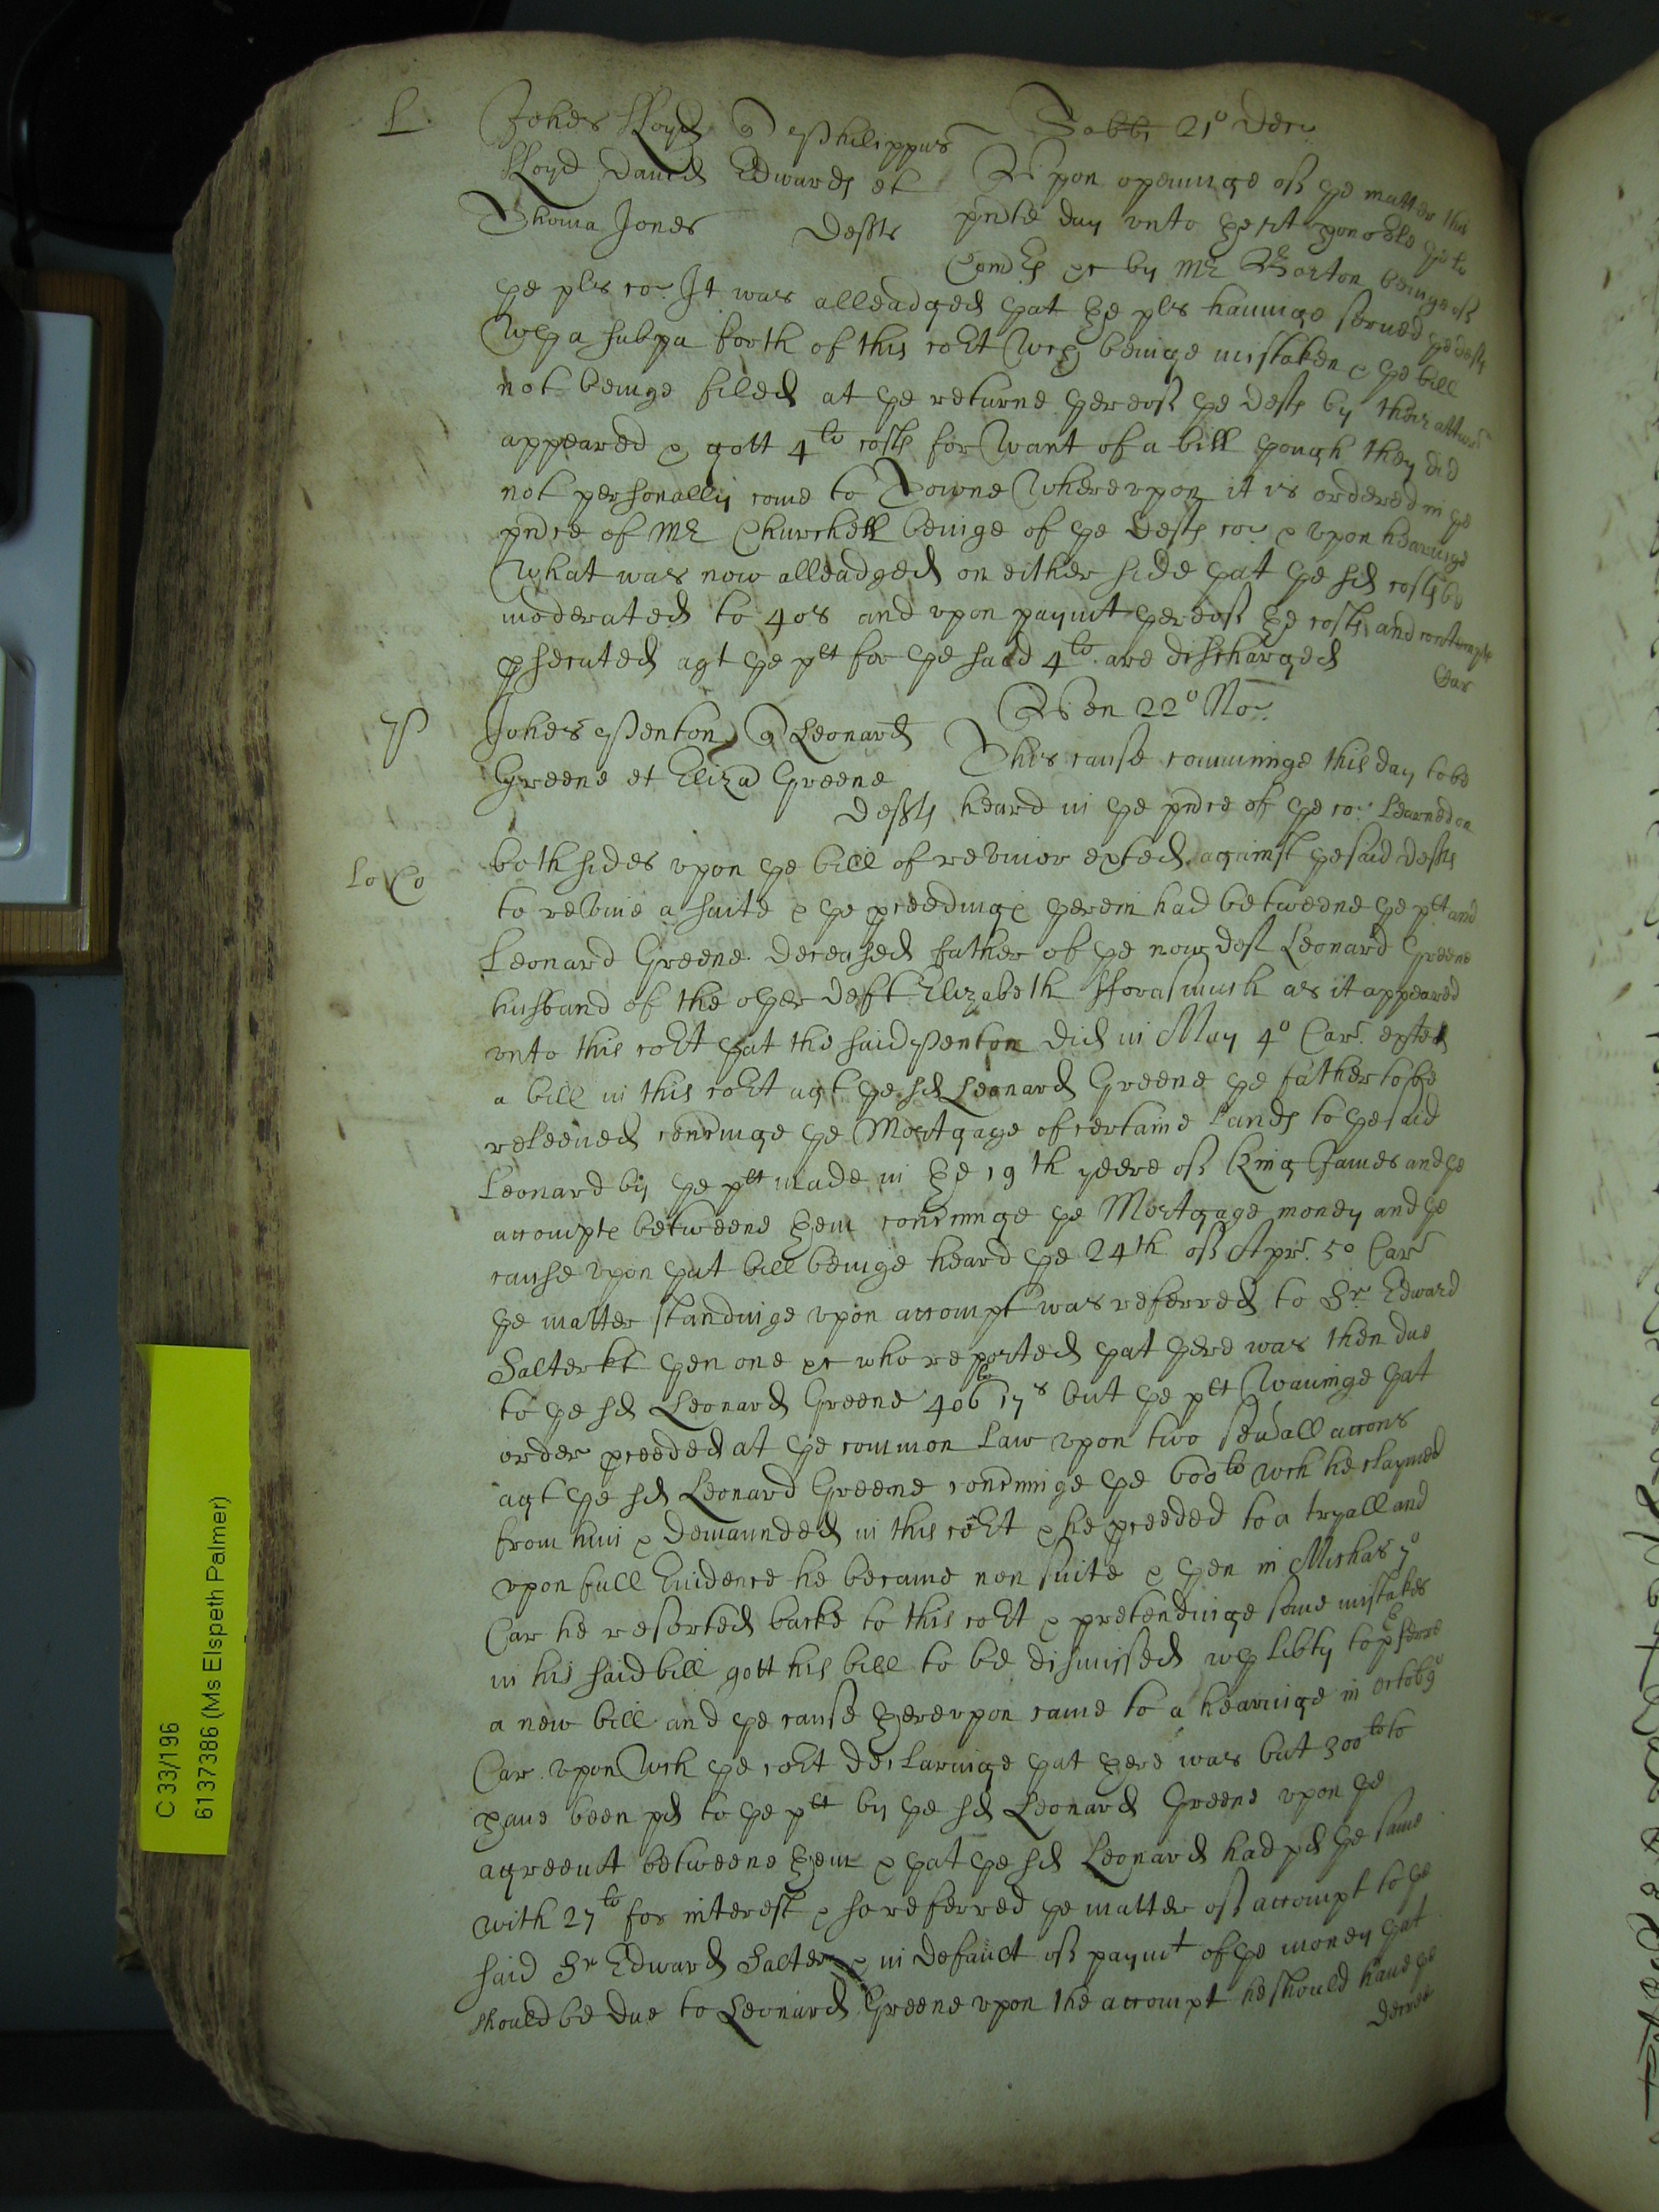 L
Johes Lloyd q Philippus
Lloyd David Edwards et
Thoma Jones Defts
Sabbi 21º Decr
Upon openinge of ye matter this
pnte day unto ye rt honoble ye Lo
by Mr Norton beinge of
ye pls co. It was alleadged yat ye pls havinge served ye defts
wth a subpa forth of this cort wch beinge mistaken & ye bill
not beinge filed at ye returne yereof ye defts by their attur
appeared & gott 4li costs for want of a bill yough they did
not personally come to Towne whereupon it is ordered in ye
pnce of Mr Churchell beinge of ye defts co & upon hearinge
what was now alleadged on either side yat ye sd costs be
moderated to 40s and upon paymt yereof ye costs and contempts
psecuted agt ye plt for ye said 4li are discharged
Car
P
Johes Penton q Leonard
Greene et Eliza Greene
Defts
Ven 22º No
This cause comminge this day to be
heard in ye pnce of ye co: Learned on
Lo Co
both sides upon ye bill of revivor exted against ye said defts
to revive a suite & ye pceedings yerein had betweene ye plt and
Leonard Greene deceased father of ye now deft Leonard Greene
husband of the oyer deft Elizabeth fforasmuch as it appeared
unto this cort yat the said Penton did in May 4º Car. exted
a bill in this cort agt ye sd Leonard Greene ye father to be
releeved concninge ye Mortgage of certaine lands to ye said
Leonard by ye plt made in ye 19th yeere of King James and ye
accompte betweene yem concninge ye Mortgage money and ye
cause upon yat bill beinge heard ye 24th of Apr. 5º Car
ye matter standinge upon accompt was referred to Sr Edward
Salter kt yen one &c who reported yat yere was then due
to ye sd Leonard Greene 406li 17s but ye plt waivinge yat
order pceeded at ye common law upon two sevall accons
agt ye sd Leonard Greene concninge ye 600li wch he claymed
from him & demaunded in this cort & he pceeded to a tryall and
upon full Evidence he became non suite & yen in Michas 7º
Car he resorted backe to this cort & pretendinge some mistakes
in his said bill gott his bill to be dismissed wth libty to pferre
a new bill and ye cause yereupon came to a hearinge in Octob 9º
Car. upon wch ye cort declaringe yat yere was but 300li to
have been pd to ye plt by ye sd Leonard Greene upon ye
agreemt betweene yem & yat ye sd Leonard had pd ye same
with 27li for interest & so referred ye matter of accompt to ye
said Sr Edward Salter & in default of paymt of ye money yat
should be due to Leonard Greene upon the accompt he should have ye
decree
C 33/196
6137386 (Ms Elspeth Palmer)